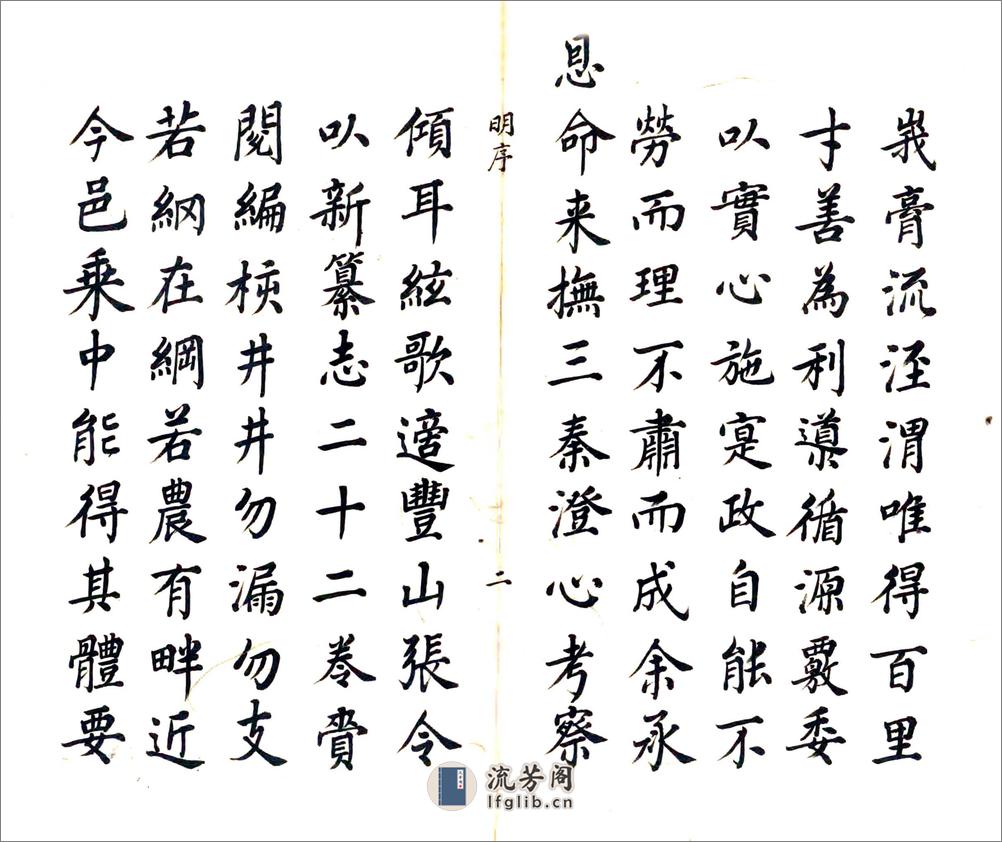 峩膏流涇渭唯得百里
才善為利導循源覈委
以實心施寔政自能不
勞而理不肅而成余承
恩命来撫三秦澄心考察
明序
二
傾耳絃歌適豐山張令
以新纂志二十二卷賷
閱編校井井勿漏勿支
若網在綱若農有畔近
今邑乗中能得其體要
流芳阁
lfglib.cn